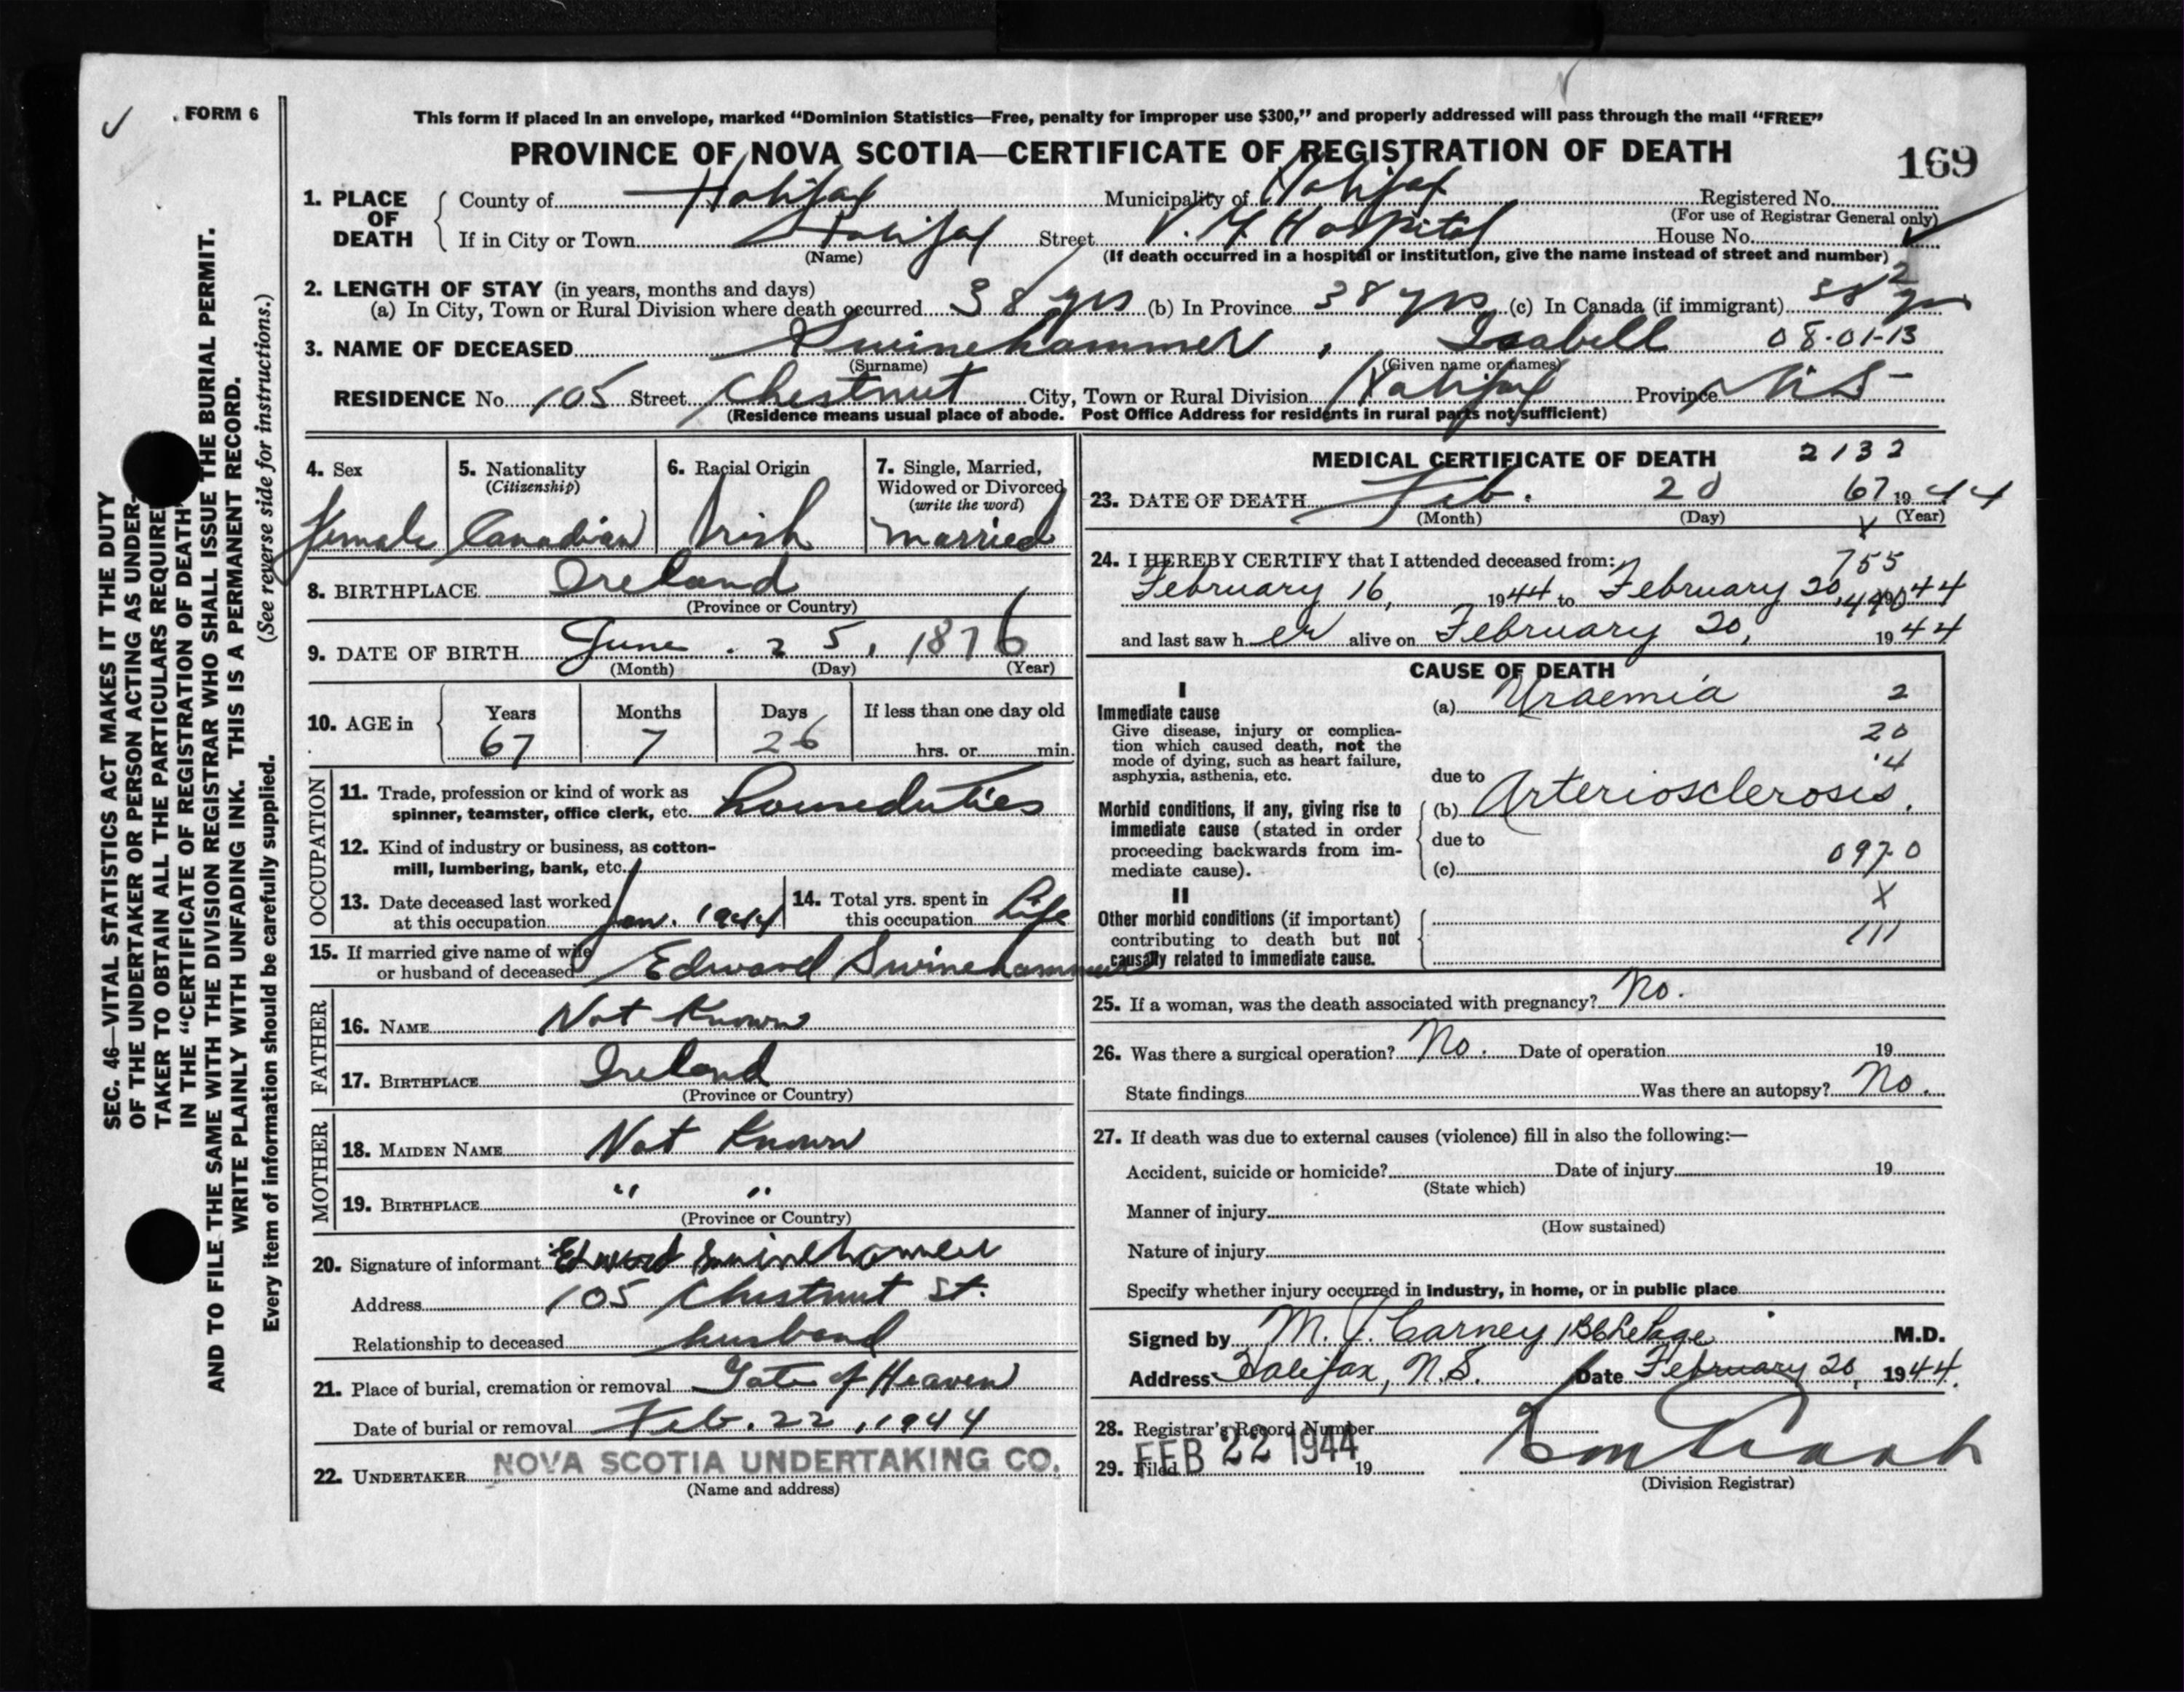 FORM 6
This form if placed in an envelope, marked “Dominion Statistics—Free, penalty for improper use $300,” and properly addressed will pass through the mail “FREE”
PROVINCE OF NOVA SCOTIA—CERTIFICATE OF REGISTRATION OF DEATH
169
1. PLACE OF DEATH
County of Halifax Municipality of Halifax Registered No.
(For use of Registrar General only)
If in City or Town Halifax Street V. G Hospital House No.
(Name) (If death occurred in a hospital or institution, give the name instead of street and number)
2. LENGTH OF STAY (in years, months and days)
(a) In City, Town or Rural Division where death occurred 38 yrs (b) In Province 38 yrs (c) In Canada (if immigrant) 38 yrs
2
3. NAME OF DECEASED Swinehammer, Isabell 08-01-13
(Surname) (Given name or names)
RESIDENCE No. 105 Street Chestnut City, Town or Rural Division Halifax Province N.S-
(Residence means usual place of abode. Post Office Address for residents in rural parts not sufficient)
4. Sex
Female
5. Nationality
(Citizenship)
Canadian
6. Racial Origin
Irish
7. Single, Married,
Widowed or Divorced
(write the word)
Married
8. BIRTHPLACE Ireland
(Province or Country)
9. DATE OF BIRTH June. 25, 1876
(Month) (Day) (Year)
10. AGE in Years Months Days If less than one day old
67 7 26 hrs. or min.
OCCUPATION
11. Trade, profession or kind of work as
spinner, teamster, office clerk, etc. houseduties
12. Kind of industry or business, as cotton-
mill, lumbering, bank, etc.
13. Date deceased last worked
at this occupation Jan. 1944
14. Total yrs. spent in
this occupation Life
15. If married give name of wife
or husband of deceased Edward Swinehammer
FATHER
16. NAME Not Known
17. BIRTHPLACE Ireland
(Province or Country)
MOTHER
18. MAIDEN NAME Not Known
19. BIRTHPLACE " "
(Province or Country)
20. Signature of informant Edward Swinehammer
Address 105 Chestnut St.
Relationship to deceased husband
21. Place of burial, cremation or removal Gate of Heaven
Date of burial or removal Feb. 22, 1944
22. UNDERTAKER NOVA SCOTIA UNDERTAKING CO.
(Name and address)
MEDICAL CERTIFICATE OF DEATH 2132
23. DATE OF DEATH Feb. 20 67 1944
(Month) (Day) (Year)
X
24. I HEREBY CERTIFY that I attended deceased from:
755
February 16, 1944 to February 20, 1944
and last saw her alive on February 20, 1944
CAUSE OF DEATH
I
Immediate cause
Give disease, injury or complica-
tion which caused death, not the
mode of dying, such as heart failure,
asphyxia, asthenia, etc.
(a) Uraemia 2
20
14
due to
Morbid conditions, if any, giving rise to
immediate cause (stated in order
proceeding backwards from im-
mediate cause).
(b) Arteriosclerosis.
due to
(c) 097-0
II
X
Other morbid conditions (if important)
contributing to death but not
causally related to immediate cause.
111
25. If a woman, was the death associated with pregnancy? No.
26. Was there a surgical operation? No. Date of operation 19
State findings Was there an autopsy? No.
27. If death was due to external causes (violence) fill in also the following:—
Accident, suicide or homicide? Date of injury 19
(State which)
Manner of injury
(How sustained)
Nature of injury
Specify whether injury occurred in industry, in home, or in public place
Signed by M. J. Carney M.D.
Address Halifax, N.S. Date February 20, 1944.
28. Registrar's Record Number
29. Filed FEB 22 1944 19
(Division Registrar)
SEC. 46—VITAL STATISTICS ACT MAKES IT THE DUTY
OF THE UNDERTAKER OR PERSON ACTING AS UNDER-
TAKER TO OBTAIN ALL THE PARTICULARS REQUIRED
IN THE “CERTIFICATE OF REGISTRATION OF DEATH”
AND TO FILE THE SAME WITH THE DIVISION REGISTRAR WHO SHALL ISSUE THE BURIAL PERMIT.
WRITE PLAINLY WITH UNFADING INK. THIS IS A PERMANENT RECORD.
Every item of information should be carefully supplied. (See reverse side for instructions.)